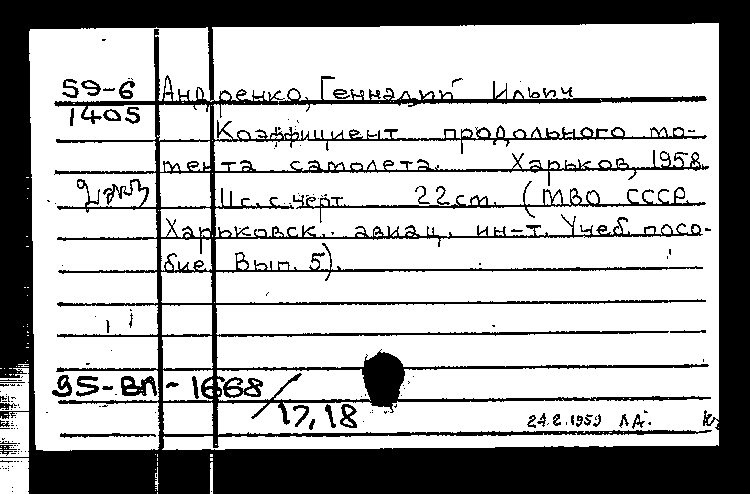 59-6 Андренко, Геннадий Ильич
1405
Коэффициент продольного мо-
мента самолета. Харьков, 1958
2 экз 11 с. с черт. 22 см. (МВО СССР
Харьковск. авиац. ин-т. Учеб. посо-
бие. Вып. 5).
95-ВЛ-1668/17,18
24.2.1959 ЛА.